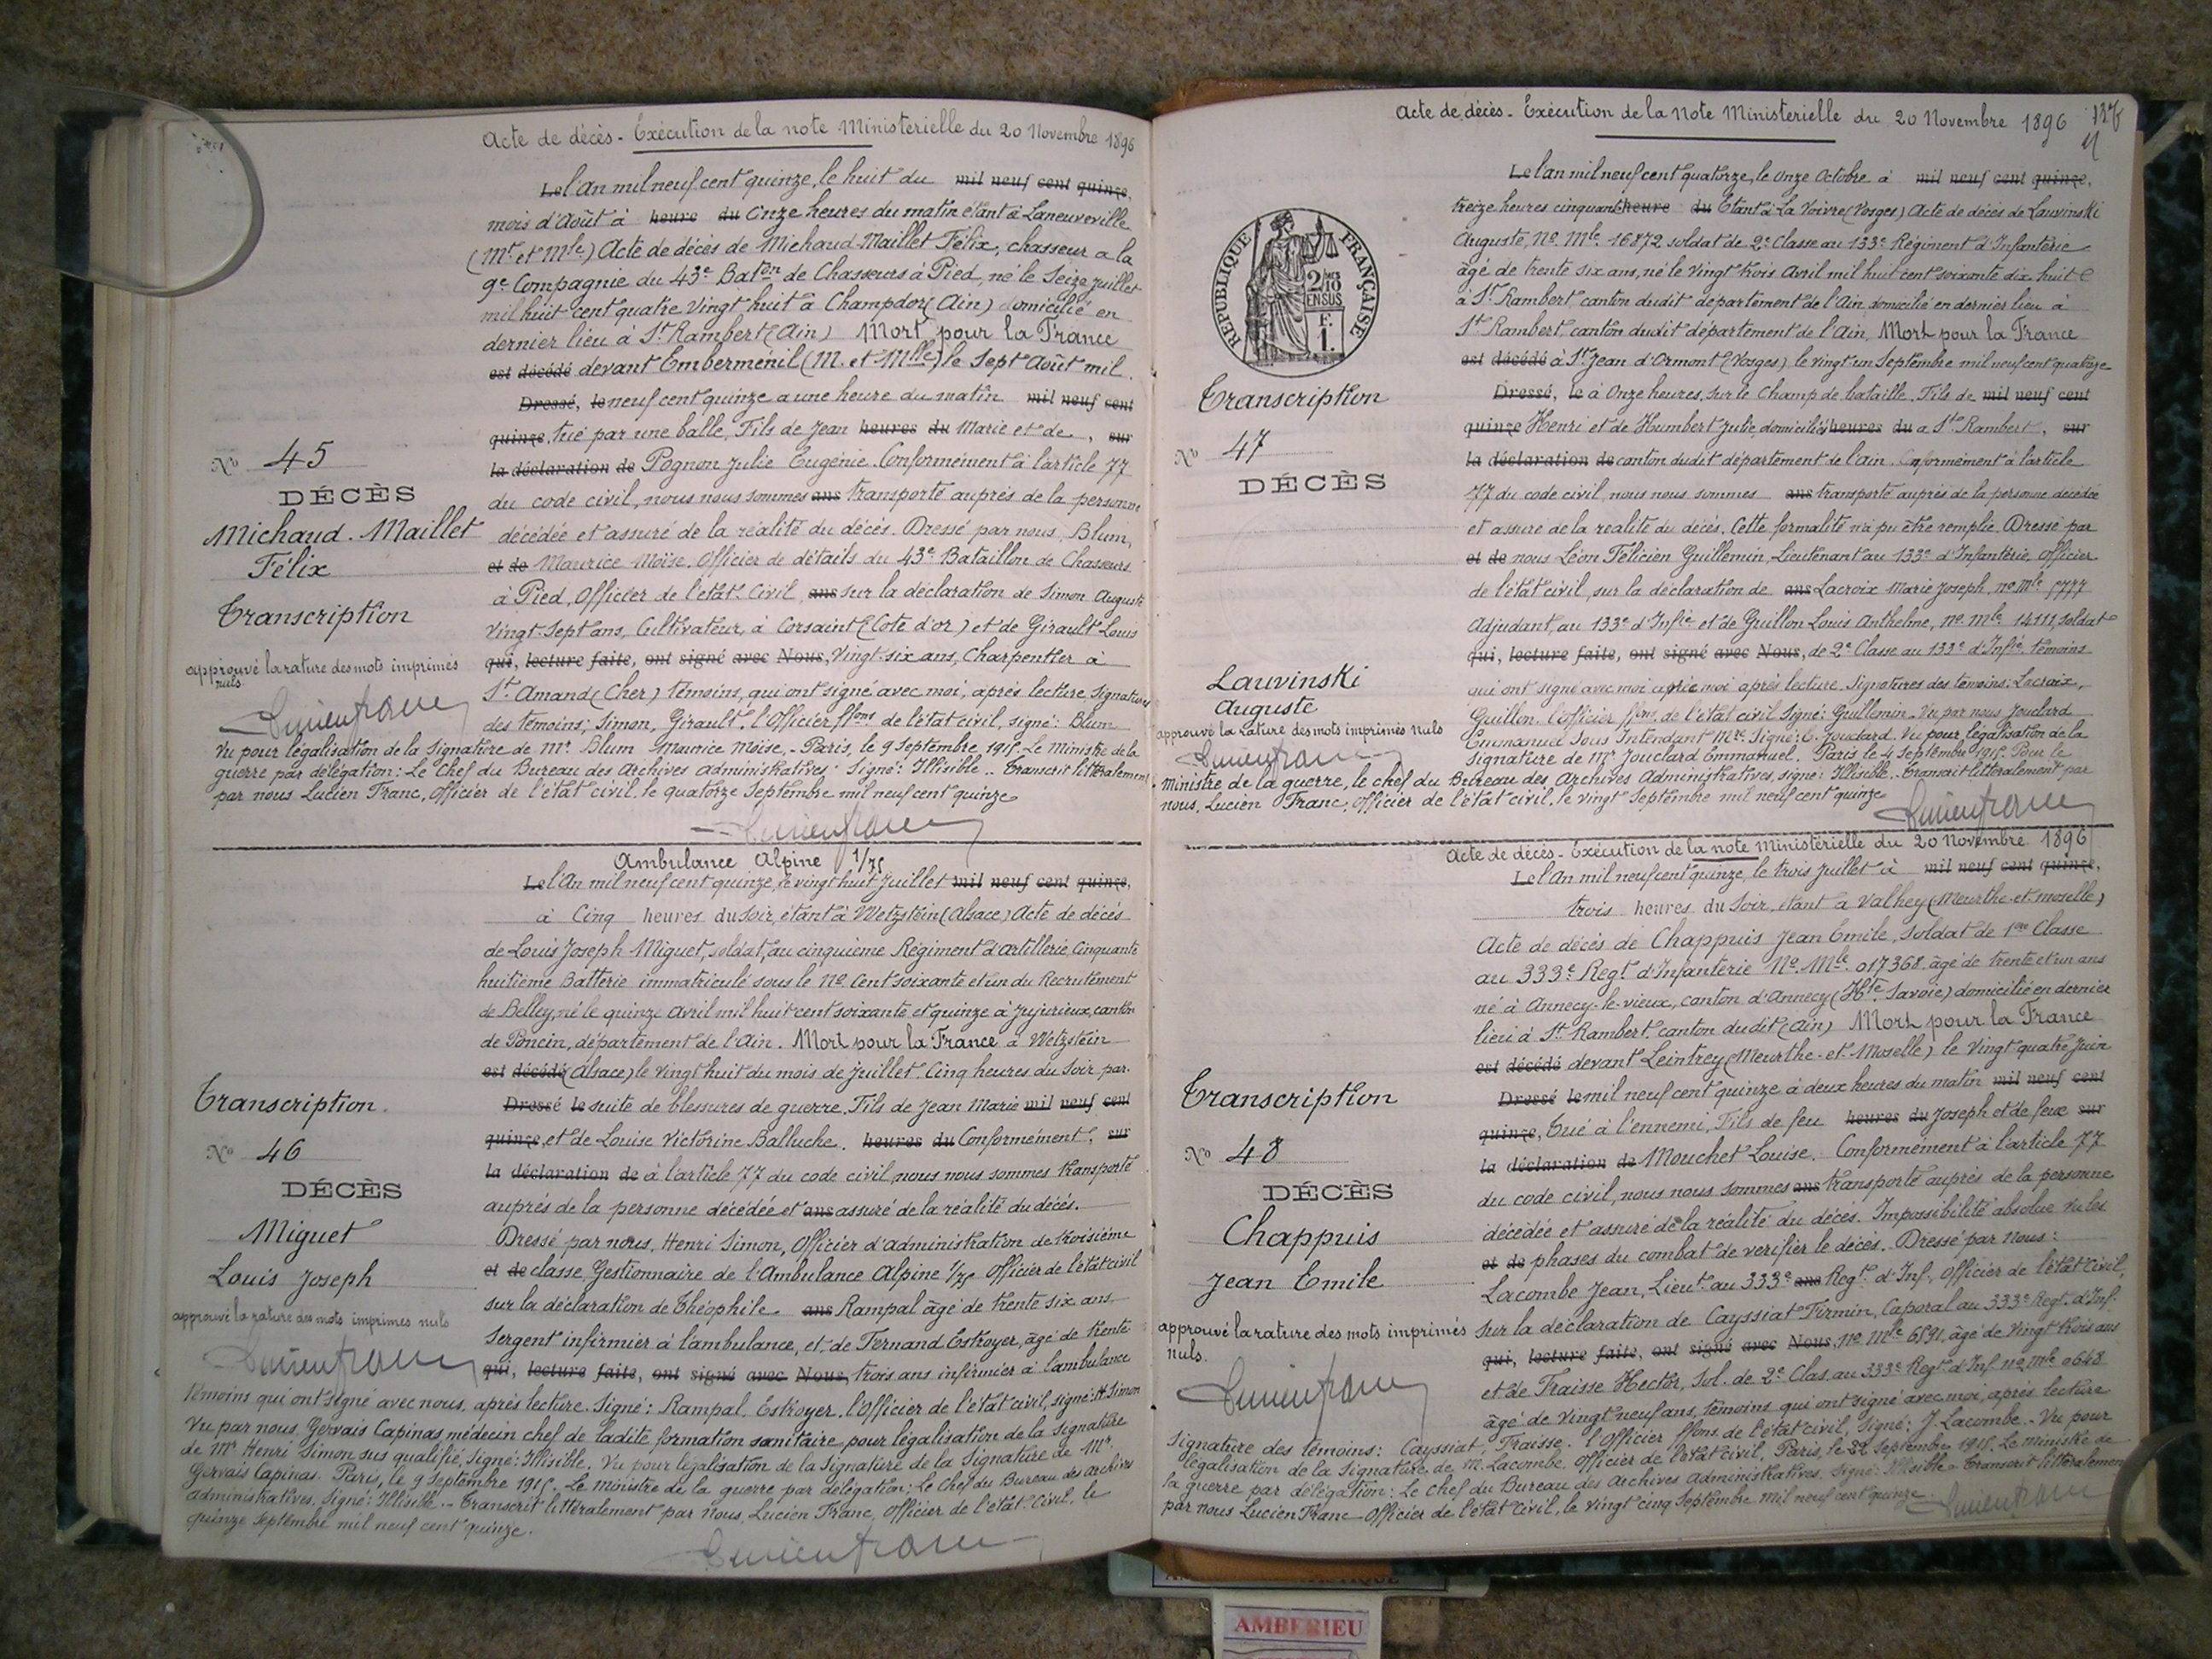 Acte de décès - Exécution de la note Ministérielle du 20 Novembre 1896
Le l'An mil neuf cent quinze, le huit du mil neuf cent quinze,
mois d'Août à heure du Onze heures du matin étant à Laneuveville
(Mthe et Mlle) Acte de décès de Michaud-Maillet Félix, chasseur a la
9e Compagnie du 43e Baton de Chasseurs à Pied, né le Seize juillet
mil huit cent quatre vingt huit à Champdor (Ain) domicilié en
dernier lieu à St Rambert (Ain) Mort pour la France
est décédé devant Emberménil (M. et Mlle) le Sept Août mil
Dressé, le neuf cent quinze a une heure du matin mil neuf cent
quinze, tué par une balle, Fils de Jean heures du Marie et de , sur
la déclaration de Pognon Julie Eugénie. Conformément à l'article 77
du code civil, nous nous sommes ans transporté auprès de la personne
décédée et assuré de la réalité du décès. Dressé par nous, Blum,
et de Maurice Moïse, Officier de détails du 43e Bataillon de Chasseurs
à Pied, Officier de l'état-Civil ans sur la déclaration de Simon Auguste
Vingt-Sept ans, Cultivateur, à Corsaint (Côte d'or) et de Girault Louis
qui, lecture faite, ont signé avec Nous, Vingt-six ans, Charpentier à
St Amand (Cher) témoins, qui ont signé avec moi, après lecture Signatures
des témoins; Simon, Girault. l'Officier ffons de l'état civil, signé: Blum
Vu pour légalisation de la Signature de Mr. Blum Maurice Moïse, - Paris, le 9 Septembre 1915. Le Ministre de la
guerre par délégation: Le Chef du Bureau des Archives administratives. Signé: Illisible .. Transcrit littéralement
par nous Lucien Franc, Officier de l'état civil, le quatorze Septembre mil neuf cent quinze
Lucien Franc
No 45
DÉCÈS
Michaud. Maillet
Félix
Transcription
approuvé la rature des mots imprimés
nuls.
Lucien Franc
Ambulance Alpine 1/75
Le l'An mil neuf cent quinze, le vingt huit Juillet mil neuf cent quinze,
à Cinq heures du Soir, étant à Wetzstein (Alsace) Acte de décès
de Louis Joseph Miguet, soldat, au cinquième Régiment d'artillerie, Cinquante
huitième Batterie immatriculé sous le No Cent soixante et un du Recrutement
de Belley, né le quinze Avril mil huit cent soixante et quinze à Jujurieux, canton
de Poncin, département de l'Ain. Mort pour la France à Wetzstein
est décédé (Alsace) le Vingt huit du mois de Juillet. Cinq heures du Soir par
Dressé le suite de blessures de guerre, Fils de Jean Marie mil neuf cent
quinze et de Louise Victorine Balluche. heures du Conformément, sur
la déclaration de à l'article 77 du code civil, nous nous sommes transporté
auprès de la personne décédée et ans assuré de la réalité du décès.
Dressé par nous, Henri Simon, Officier d'administration de troisième
et de classe Gestionnaire de l'Ambulance Alpine 1/75 Officier de l'état civil
sur la déclaration de Théophile ans Rampal âgé de trente six ans,
Sergent infirmier à l'ambulance, et de Fernand Estroyer, âgé de trente
qui, lecture faite, ont signé avec Nous, trois ans infirmier à l'ambulance
témoins qui ont signé avec nous, après lecture. Signé: Rampal. Estroyer. l'Officier de l'état civil, signé: H. Simon
Vu par nous, Gervais Capinas, médecin chef de ladite formation sanitaire pour légalisation de la signature
de Mr Henri Simon sus qualifié, signé: Illisible. Vu pour légalisation de la Signature de la Signature de Mr.
Gervais Capinas. Paris, le 9 Septembre 1915. Le ministre de la guerre par délégation: Le Chef du Bureau des archives
administratives, Signé: Illisible .- Transcrit littéralement par Nous, Lucien Franc, Officier de l'état-Civil, le
quinze Septembre mil neuf cent quinze.
Lucien Franc
Transcription.
No 46
DÉCÈS
Miguet
Louis Joseph
approuvé la rature des mots imprimés nuls
Lucien Franc
Acte de décès - Exécution de la Note Ministérielle du 20 Novembre 1896
Le l'an mil neuf cent quatorze, le Onze Octobre à mil neuf cent quinze,
treize heures cinquante heure du Etant à La Voivre (Vosges) Acte de décès de Lauvinski
Auguste, No. Mle 16872 soldat de 2e Classe au 133e Régiment d'Infanterie
âgé de trente six ans, né le Vingt trois Avril mil huit cent soixante dix huit
à St Rambert canton dudit département de l'Ain domicilié en dernier lieu à
St Rambert canton dudit département de l'Ain, Mort pour la France
est décédé à St Jean d'Ormont (Vosges) le vingt un Septembre mil neuf cent quatorze
Dressé, le à Onze heures, sur le Champ de bataille. Fils de mil neuf cent
quinze Henri et de Humbert Julie, domiciliés heures du a St Rambert, sur
la déclaration de canton dudit département de l'ain. Conformément à l'article
77 du code civil, nous nous sommes ans transporté auprès de la personne décédée
et assuré de la réalité du décès. Cette formalité n'a pu être remplie. Dressé par
et de nous Léon Félicien Guillemin, Lieutenant au 133e d'Infanterie, Officier
de l'état civil, sur la déclaration de ans Lacroix Marie Joseph, no Mle 5777
Adjudant, au 133e d'Infie et de Guillon Louis Anthelme, no. Mle 14111, Soldat
qui, lecture faite, ont signé avec Nous, de 2e Classe au 133e d'Infie témoins
qui ont signé avec moi après lecture. Signatures des témoins: Lacroix,
Guillon. l'officier ffons de l'état civil Signé: Guillemin. Vu par nous Jouclard
Emmanuel Sous Intendant Mre Signé: E. Jouclard. Vu pour légalisation de la
signature de Mr Jouclard Emmanuel. Paris le 4 Septembre 1915 Pour le
Ministre de la guerre, le chef du Bureau des Archives Administratives, signé: Illisible.. Transcrit littéralement par
nous, Lucien Franc, Officier de l'état civil, le vingt Septembre mil neuf cent quinze
Lucien Franc
RÉPUBLIQUE FRANÇAISE
2/10
EN SUS
F.
1.
Transcription
No 47
DÉCÈS
Lauvinski
Auguste
approuvé la rature des mots imprimés nuls
Lucien Franc
Acte de décès - Exécution de la note Ministérielle du 20 Novembre 1896
Le l'An mil neuf cent quinze, le trois Juillet à mil neuf cent quinze,
trois heures du Soir, étant à Valhey (Meurthe-et-moselle)
Acte de décès de Chappuis Jean Emile, Soldat de 1ère Classe
au 333e Regt d'Infanterie No. Mle 017368 âgé de trente et un ans
né à Annecy-le-vieux, canton d'Annecy (Hte Savoie) domicilié en dernier
lieu à St Rambert. canton dudit (Ain) Mort pour la France
est décédé devant Leintrey (Meurthe-et-Moselle) le Vingt quatre Juin
Dressé le mil neuf cent quinze à deux heures du matin mil neuf cent
quinze, tué à l'ennemi, Fils de feu heures du Joseph et de feue sur
la déclaration de Mouchet Louise. Conformément à l'article 77
du code civil, nous nous sommes ans transporté auprès de la personne
décédée et assuré de la réalité du décès. Impossibilité absolue vu les
et de phases du combat de vérifier le décès. Dressé par Nous:
Lacombe Jean, Lieut. au 333e ans Regt d'Inf, Officier de l'état Civil,
sur la déclaration de Cayssiat Firmin, Caporal au 333e Regt. d'Inf.
qui, lecture faite, ont signé avec Nous, No Mle 6891, âgé de Vingt trois ans
et de Fraisse Hector, Sol. de 2e Clas. au 333e Regt d'Inf no Mle 0648
âgé de Vingt neuf ans, témoins qui ont signé avec moi, après lecture
Signature des témoins: Cayssiat, Fraisse. l'Officier ffons. de l'état civil, Signé: J. Lacombe .. Vu pour
légalisation de la Signature de M. Lacombe Officier de l'état civil, Paris, le 22 Septembre 1915, Le Ministre de
la guerre par délégation: Le chef du Bureau des Archives Administratives, Signé: Illisible - Transcrit littéralement
par nous Lucien Franc Officier de l'état civil, le vingt cinq Septembre mil neuf cent quinze
Lucien Franc
Transcription
No 48
DÉCÈS
Chappuis
Jean Emile
approuvé la rature des mots imprimés
nuls.
Lucien Franc
AMBERIEU